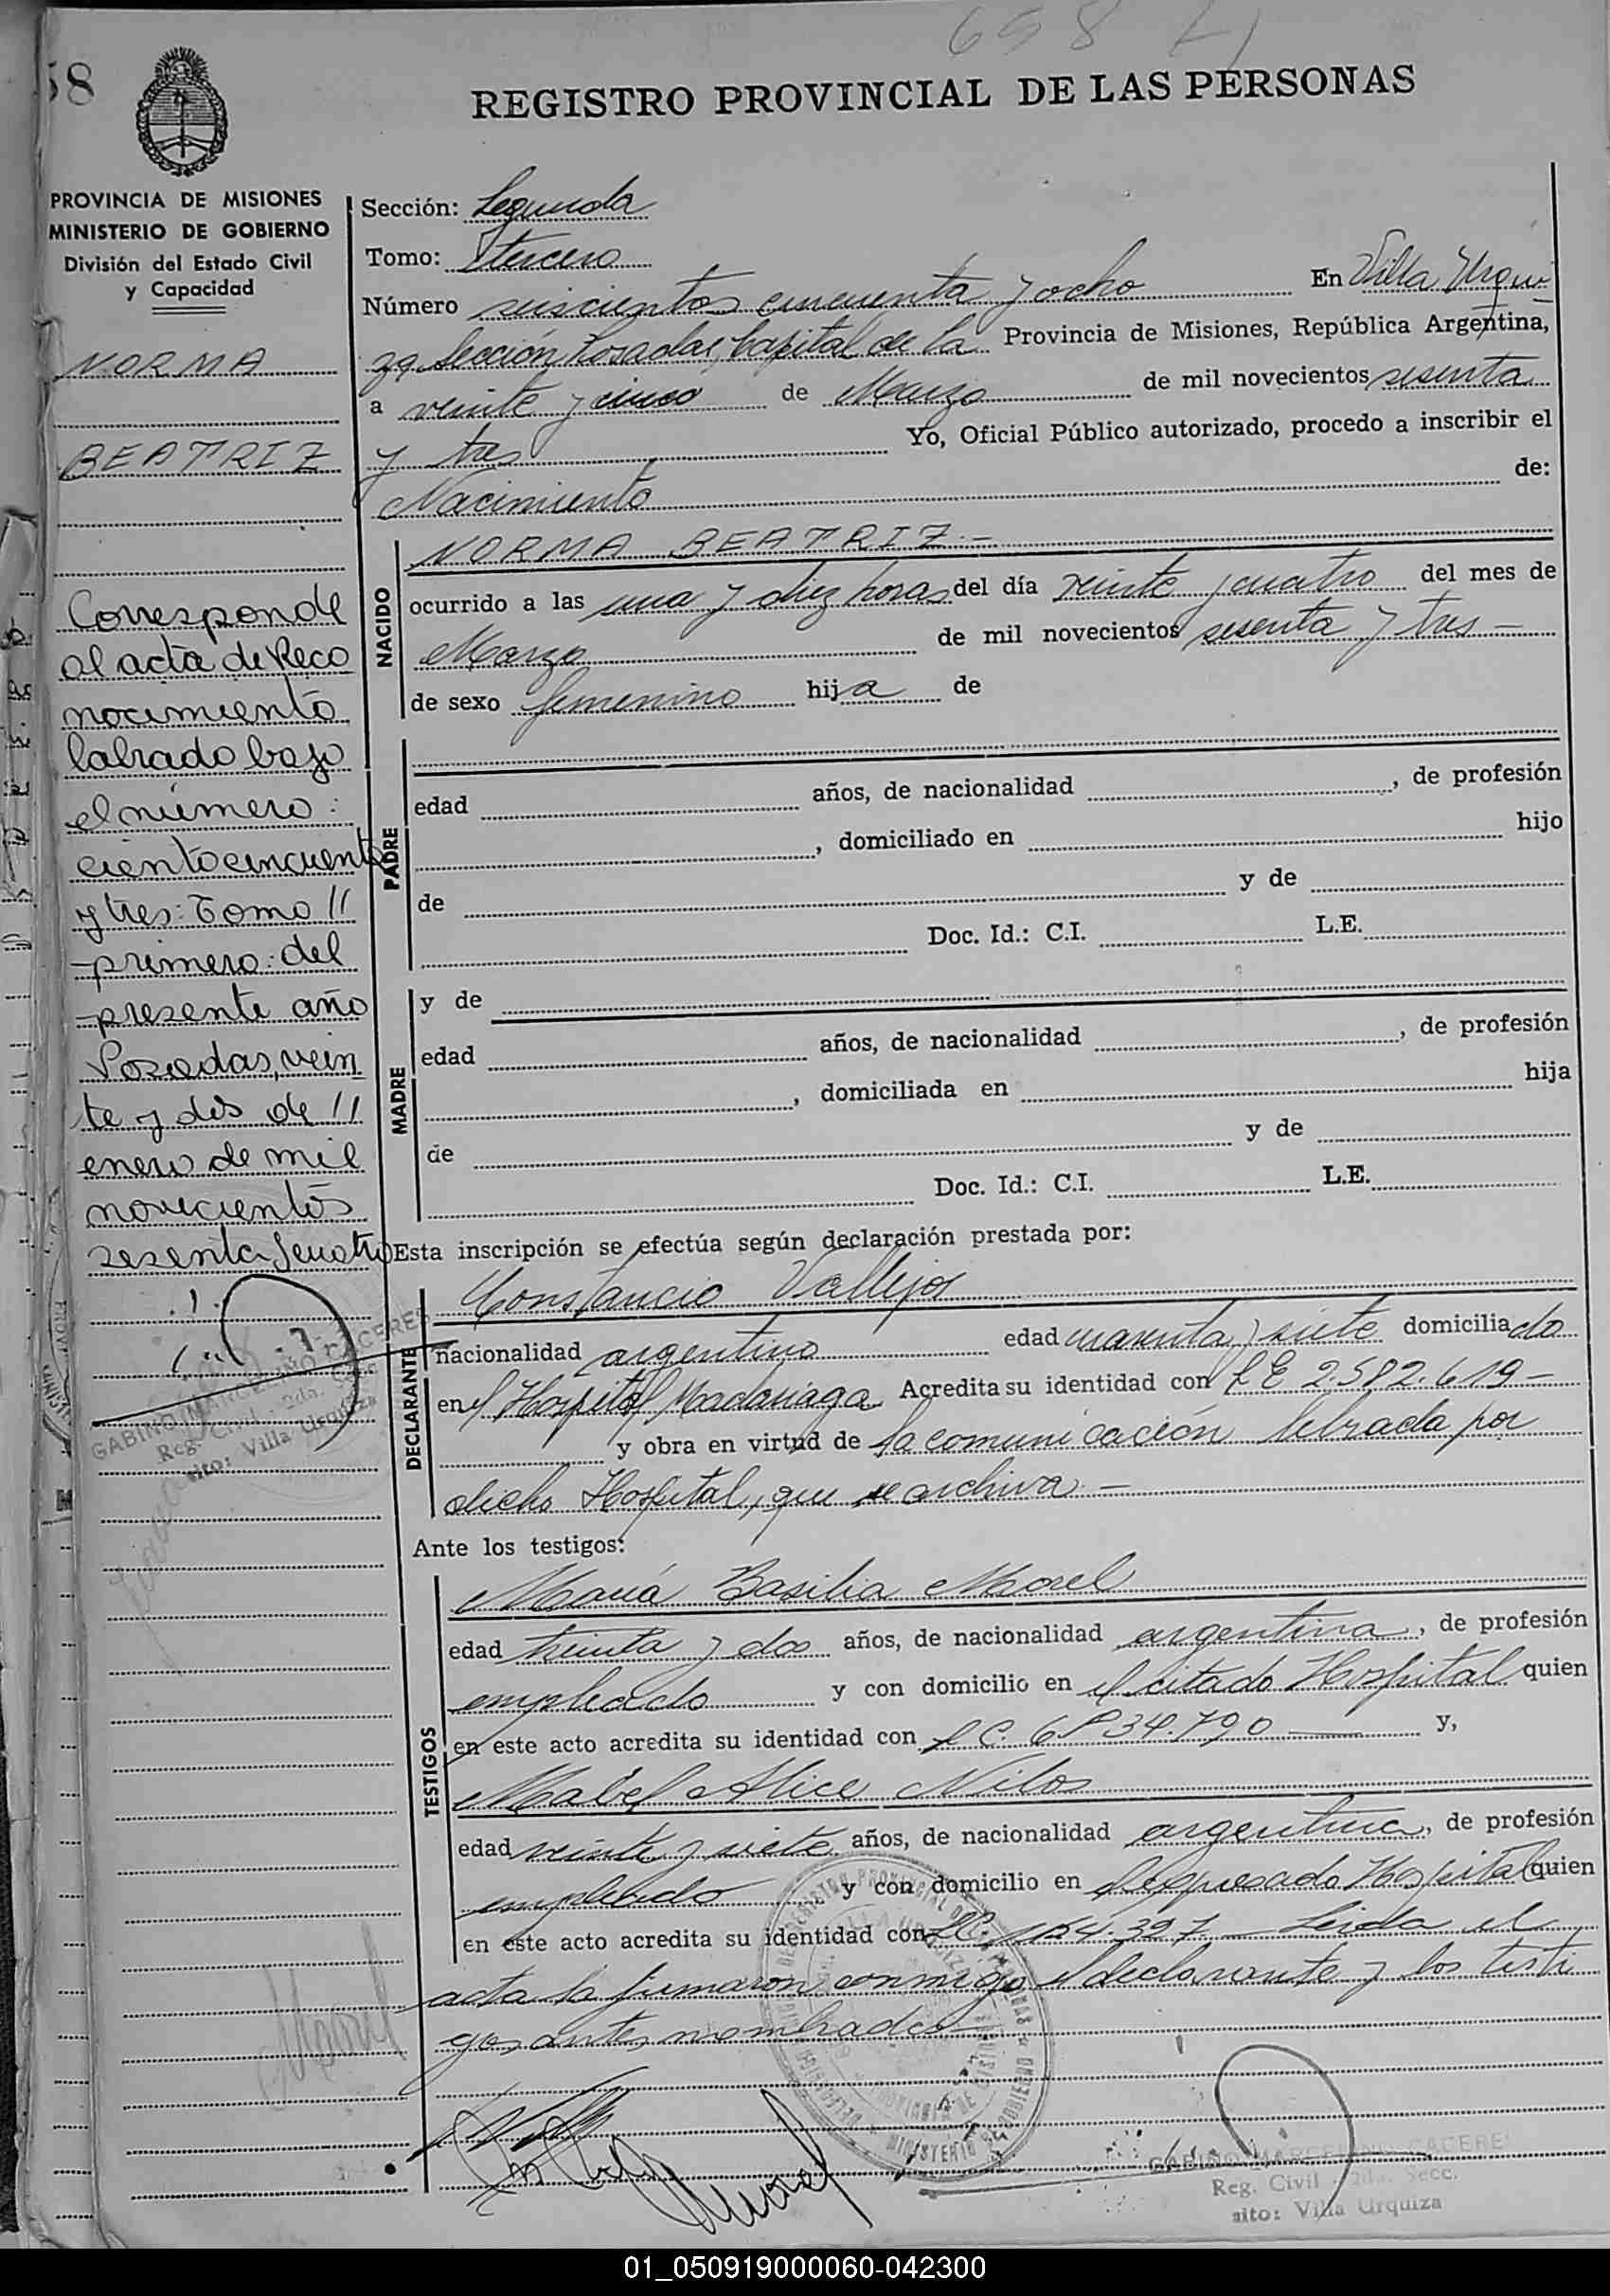 658
58
REGISTRO PROVINCIAL DE LAS PERSONAS
PROVINCIA DE MISIONES
MINISTERIO DE GOBIERNO
División del Estado Civil
y Capacidad
NORMA
BEATRIZ
Corresponde
al acta de Reco
nocimiento
labrado bajo
el número:
ciento cincuenta
y tres: Tomo //
primero: del
presente año
Posadas, vein
te y dos de //
enero de mil
novecientos
sesenta y cuatro
GABINO MARCELINO CACERES
Reg. Civil - 2da. Secc.
sito: Villa Urquiza
Sección: Segunda
Tomo: tercero
Número seiscientos cincuenta y ocho En Villa Urqui-
za Sección Posadas, Capital de la Provincia de Misiones, República Argentina,
a veinte y cinco de Marzo de mil novecientos sesenta
y tres Yo, Oficial Público autorizado, procedo a inscribir el
Nacimiento de:
NACIDO
NORMA BEATRIZ.-
ocurrido a las una y diez horas del día veinte y cuatro del mes de
Marzo de mil novecientos sesenta y tres -
de sexo femenino hija de
PADRE
edad años, de nacionalidad , de profesión
, domiciliado en hijo
de y de
Doc. Id.: C.I. L.E.
MADRE
y de
edad años, de nacionalidad , de profesión
, domiciliada en hija
de y de
Doc. Id.: C.I. L.E.
Esta inscripción se efectúa según declaración prestada por:
DECLARANTE
Constancio Vallejos
nacionalidad argentino edad cuarenta y siete domiciliado
en el Hospital Madariaga Acredita su identidad con L E 2.582.619 -
y obra en virtud de la comunicación librada por
dicho Hospital, que se archiva. -
Ante los testigos:
TESTIGOS
María Basilia Morel
edad treinta y dos años, de nacionalidad argentina, de profesión
empleado y con domicilio en el citado Hospital quien
en este acto acredita su identidad con L C. y,
Mabel Alice Nilos
edad veinte y siete años, de nacionalidad argentina, de profesión
empleado y con domicilio en el expresado Hospital quien
en este acto acredita su identidad con LC. Leida el
acta la firmaron conmigo, el declarante y los testi
gos antes nombrados
Morel
GABINO MARCELINO CACERES
Reg. Civil 2da. Secc.
sito: Villa Urquiza
01_050919000060-042300